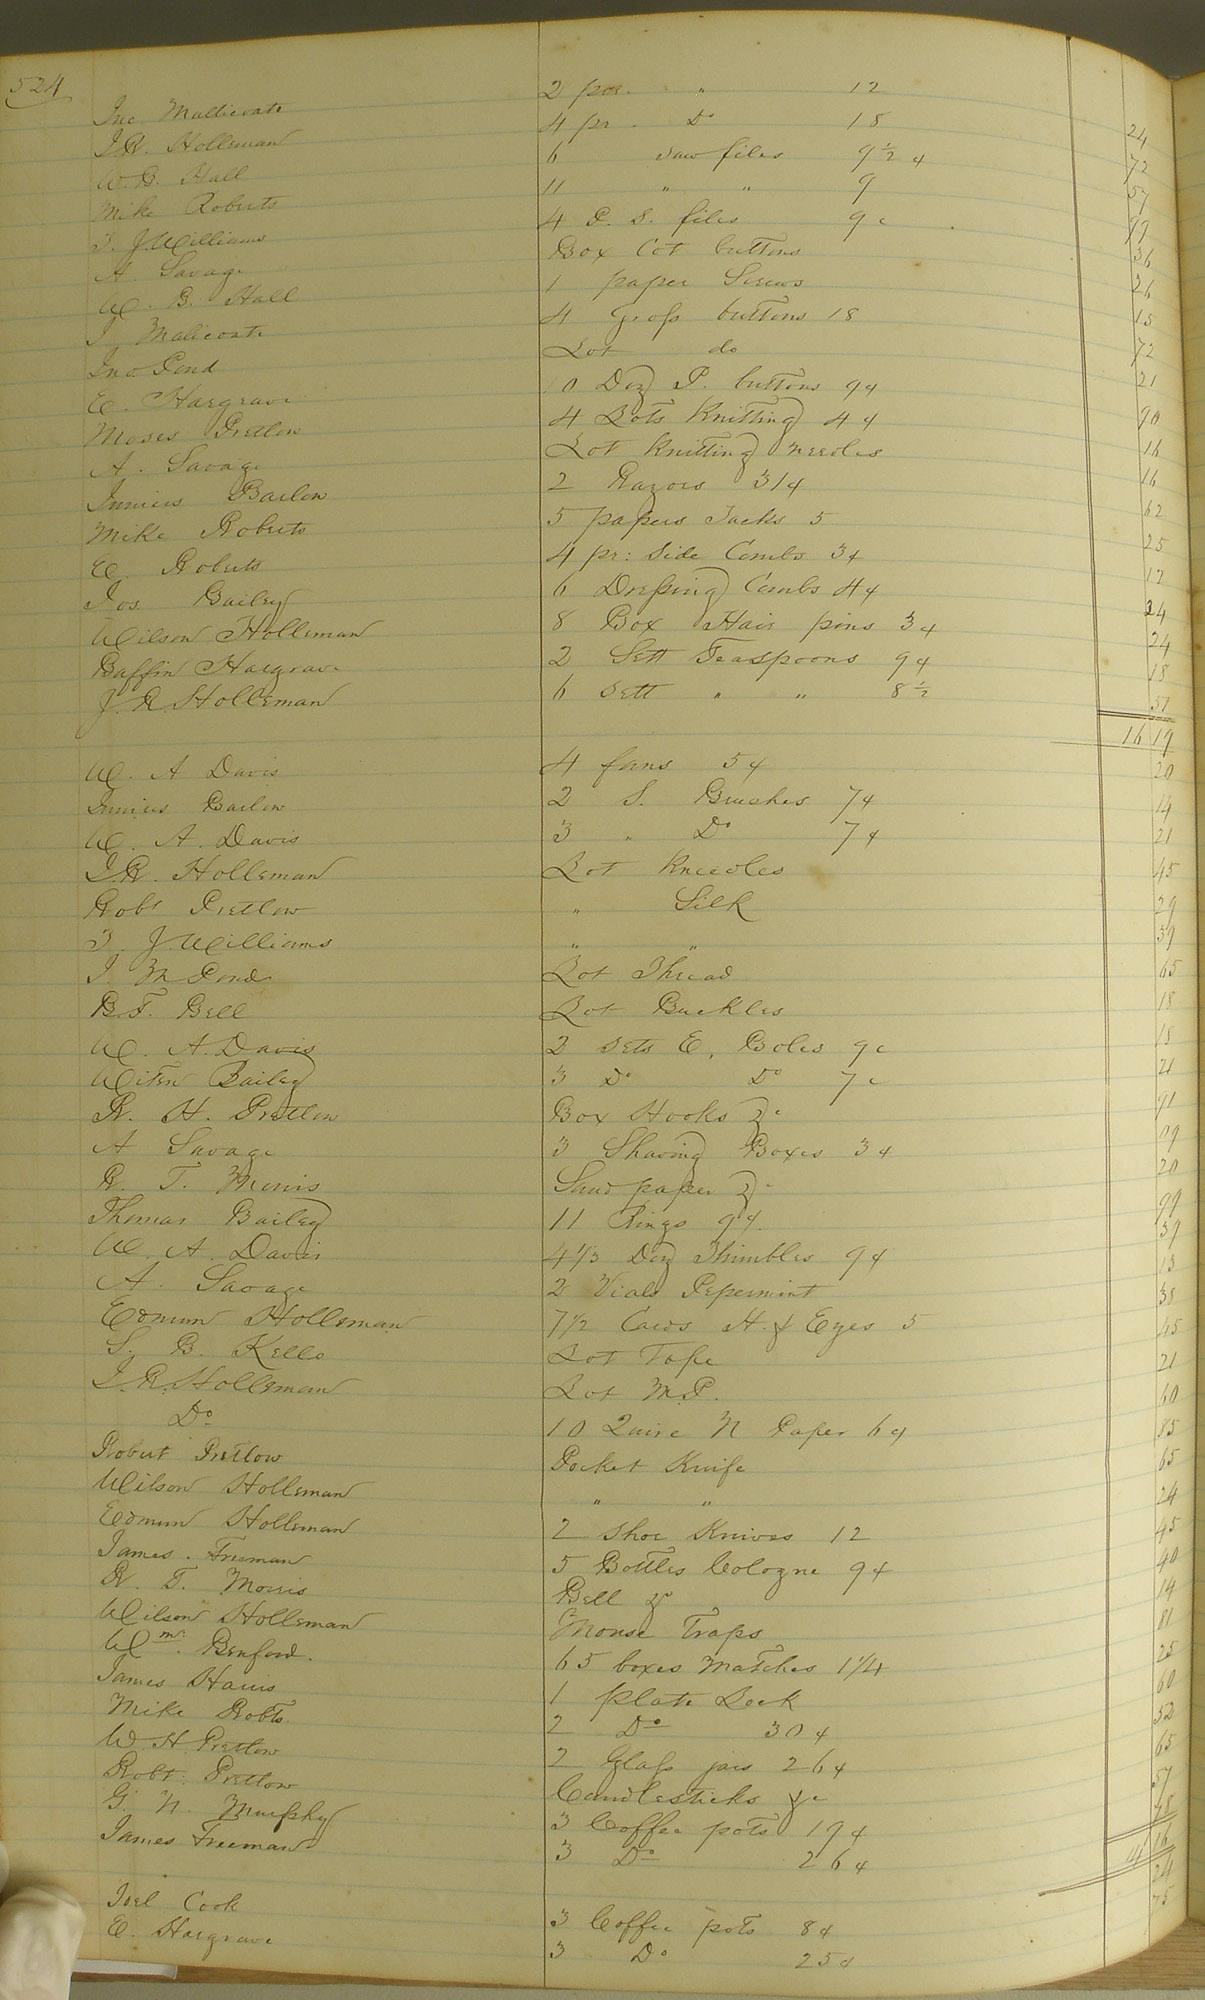 524
Jno Mallicoate 2 pr. " 12 24
J.R. Holleman 4 pr. Do 18 72
W.B. Hall 6 Saw files 9½ ¢ 57
Mike Roberts 11 " " 9 99
T. J. Williams 4 P. S. files 9 c 36
A. Savage Box Cot buttons 26
W. B. Hall 1 paper Screws 15
J Malicoate 4 Gross buttons 18 72
Jno Pond Lot do 21
E. Hargrave 10 Doz P. buttons 9¢ 90
Moses Pretlow 4 Lots Knitting 4¢ 16
A. Savage Lot Knitting needles 16
Junius Barlow 2 Razors 31¢ 62
Mike Roberts 5 papers Tacks 5 25
E. Roberts 4 pr: Side Combs 3¢ 12
Jos. Bailey 6 Dressing Combs 4¢ 24
Wilson Holleman 8 Box Hair pins 3¢ 24
Baffin Hargrave 2 Sett Teaspoons 9¢ 18
J. R. Holleman 6 Sett " " 8½ 51
16 19
W. A Davis 4 fans 5¢ 20
Junius Barlow 2 S. Brushes 7¢ 14
W. A. Davis 3 " Do 7¢ 21
J.R. Holleman Lot Kneedles 45
Robt Pretlow " Silk 29
T. J. Williams " " 39
J. M Pond Lot Thread 65
B.F. Bell Lot Buckles 18
W. A. Davis 2 Sets E. Boles 9 c 18
Bailey 3 Do Do 7 c 21
R. H. Pretlow Box Hooks &c 91
A Savage 3 Shaving Boxes 3¢ 09
R. T. Morris Sand paper &c 20
Thomas Bailey 11 Rings 9¢. 99
W. A. Davis 4⅓ Doz Thimbles 9¢ 39
A. Savage 2 Vials Pepermint 13
Edmun Holleman 7½ Cards H. & Eyes 5 38
S. B. Kello Lot Tape 45
J.R. Holleman Lot M.P. 21
Do 10 Quire N Paper 6¢ 60
Robert Pretlow Pocket Knife 85
Wilson Holleman " " 65
Edmun Holleman 2 Shoe Knives 12 24
James. Freeman 5 Bottles Cologne 9¢ 45
R. T. Morris Bell &c 40
Wilson Holleman Mouse Traps 14
Wm. Benford. 65 boxes Matches 1¼ 81
James Harris 1 plate Lock 25
Mike Robts. 2 Do 30¢ 60
W. H. Pretlow 2 Glass jars 26¢ 52
Robt. Pretlow Candlesticks &c 65
G. N. Murphy 3 Coffee pots 19¢ 57
James Freeman 3 Do 26¢ 78
14 16
Joel Cook 3 Coffee pots 8¢ 24
E. Hargrave 3 Do 25¢ 75